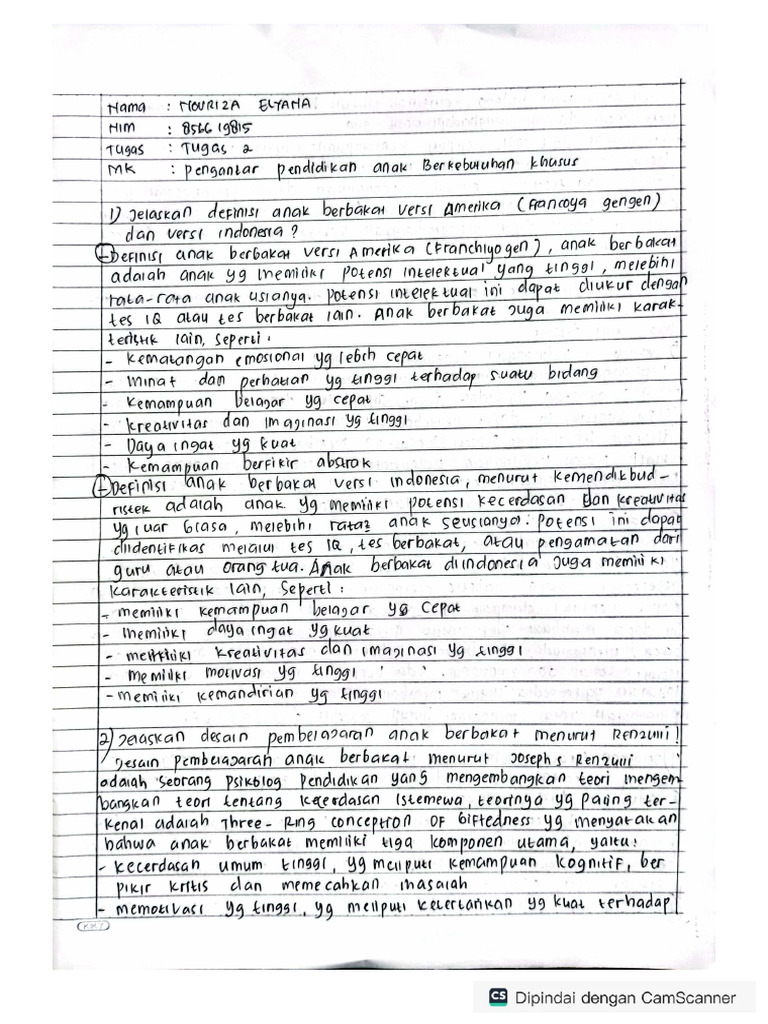 Nama : NOURIZA ELYANA
NIM : 856619815
Tugas : Tugas 2
MK : Pengantar Pendidikan anak Berkebutuhan khusus
1) Jelaskan definisi anak berbakat versi Amerika (Francoya gengen)
dan versi indonesia ?
- Definisi anak berbakat versi Amerika (Franchiyogen), anak berbakat
adalah anak yg memiliki potensi intelektual yang tinggi, melebihi
rata-rata anak usianya. Potensi intelektual ini dapat diukur dengan
tes IQ atau tes berbakat lain. Anak berbakat juga memiliki karak-
teristik lain, seperti :
- Kematangan emosional yg lebih cepat
- Minat dan perhatian yg tinggi terhadap suatu bidang
- Kemampuan belajar yg cepat
- Kreativitas dan imaginasi yg tinggi
- Daya ingat yg kuat
- Kemampuan berfikir abstrak
- Definisi anak berbakat versi indonesia, menurut Kemendikbud-
ristek adalah anak yg memiliki potensi kecerdasan dan kreativitas
yg luar biasa, melebihi rata2 anak seusianya. Potensi ini dapat
diidentifikas melalui tes IQ, tes berbakat, atau pengamatan dari
guru atau orang tua. Anak berbakat di indonesia juga memiliki
karakteristik lain, seperti :
- memiliki kemampuan belajar yg cepat
- memiliki daya ingat yg kuat
- memiliki kreativitas dan imaginasi yg tinggi
- memiliki motivasi yg tinggi
- memiliki kemandirian yg tinggi
2) Jelaskan desain pembelajaran anak berbakat menurut Renzulli !
Desain pembelajaran anak berbakat menurut Josephs Renzulli
adalah seorang psikolog pendidikan yang mengembangkan teori mengem
bangkan teori tentang kecerdasan istemewa, teorinya yg paling ter-
kenal adalah Three-Ring conception OF Giftedness yg menyatakan
bahwa anak berbakat memiliki tiga komponen utama, yaitu :
- kecerdasan umum tinggi, yg meliputi kemampuan kognitif, ber
pikir kritis dan memecahkan masalah
- memotivasi yg tinggi, yg meliputi ketertarikan yg kuat terhadap
KKY
CS Dipindai dengan CamScanner